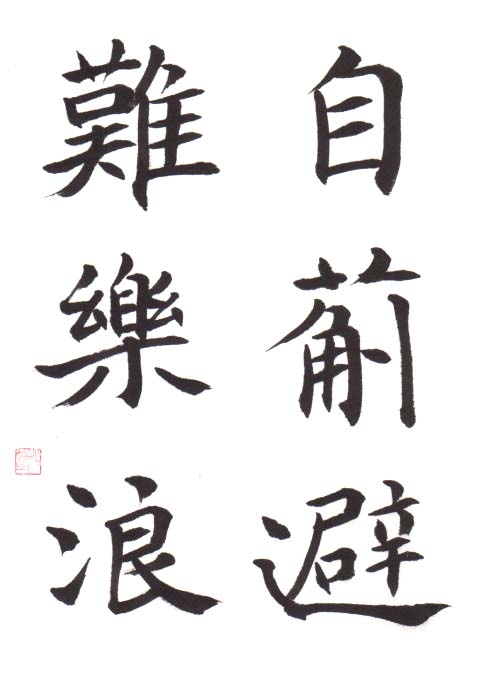 自葪避
難樂浪